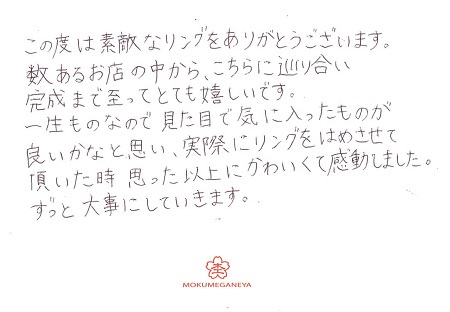 この度は素敵なリングをありがとうございます。
数あるお店の中から、こちらに巡り合い
完成まで至ってとても嬉しいです。
一生ものなので見た目で気に入ったものが
良いかなと思い、実際にリングをはめさせて
頂いた時 思った以上にかわいくて感動しました。
ずっと大事にしていきます。
MOKUMEGANEYA